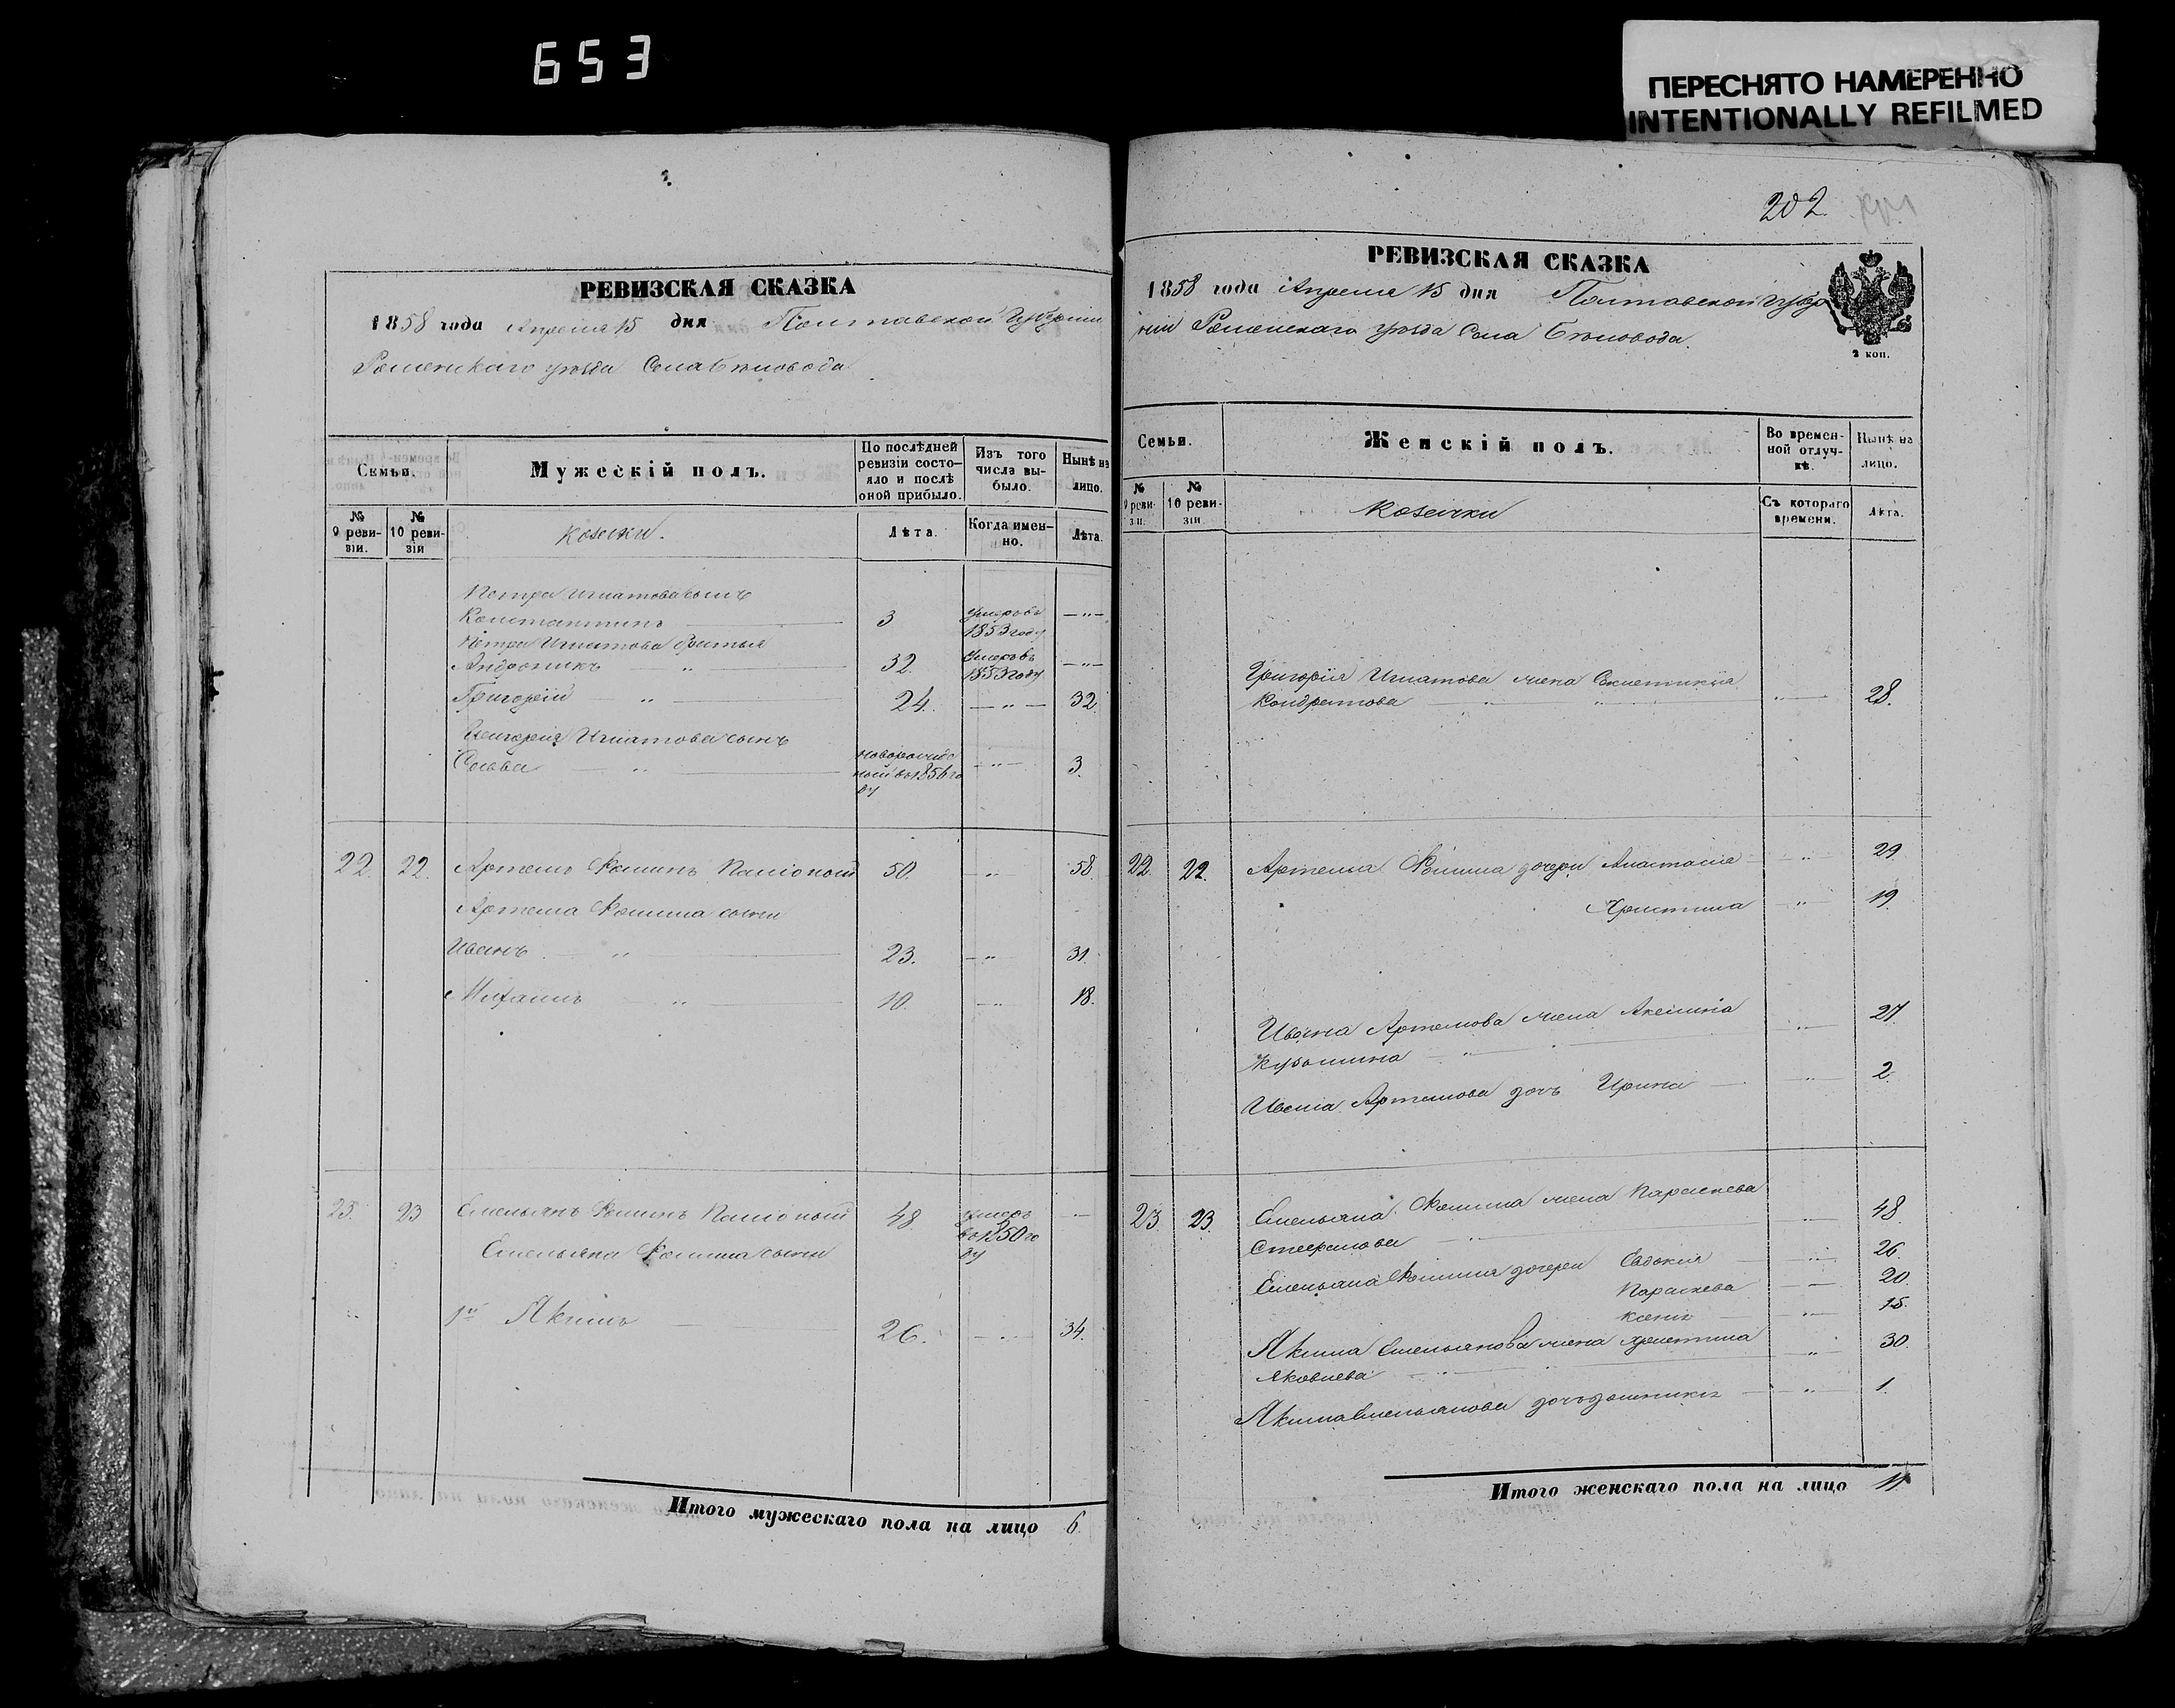 653
ПЕРЕСНЯТО НАМЕРЕННО
INTENTIONALLY REFILMED
РЕВИЗСКАЯ СКАЗКА
1858 года Апреля 15 дня Полтавской Губерніи
Роменскаго уѣзда Села Бѣловода
Семьи.
Мужескій полъ.
По послѣдней ревизіи состо-
яло и послѣ
оной прибыло.
Изъ того
числа вы-
было.
Нынѣ на
лицо.
№
9 реви-
зіи.
№
10 реви-
зіи
Козаки.
Лѣта.
Когда имен-
но.
Лѣта.
Петра Игнатова сынъ
Константинъ 3 умеръ въ 1853 году — „ —
Петра Игнатова братья
Андроникъ „ 32. Умеръ въ 1853 году — „ —
Григорій „ 24. — „ — 32
Григорія Игнатова сынъ
Савва „ новорожден
ный въ 1856 го
ду — „ — 3.
22. 22. Артемъ Фоминъ 50. „ 58.
Артема Фомина сыны
Иванъ „ 23. — „ 31.
Михаилъ „ 10. — „ 18.
23. 23 Емельянъ Фоминъ 48 умеръ
въ 1850 го
ду —
Емельяна Фомина сыны
1й Якимъ 26. — „ — 34.
Итого мужескаго пола на лицо 6.
202
РЕВИЗСКАЯ СКАЗКА
1858 года Апреля 15 дня Полтавской Губер
ніи Роменскаго уѣзда Села Бѣловода.
2 коп.
Семьи.
Женскій полъ.
Во времен-
ной отлуч-
кѣ.
Нынѣ на
лицо.
№
9 реви-
зіи.
№
10 реви-
зіи.
Козачки
Съ котораго
времени.
Лѣта.
Григорія Игнатова жена
Кондратова „ „ „ 28.
22. 22. Артема Фомина дочери Анастасія „ 29
Христина „ 19.
Ивана Артемова жена Акилина
„ „ 27.
Ивана Артемова дочь Ирина „ 2.
23. 23. Емельяна Фомина жена Параскева
Стефанова „ 48.
Емельяна Фомина дочери Евдокія „ 26.
Параскева — 20.
Ксенія „ 15.
Якима Емельянова жена Христина
Яковлева „ „ 30.
Якима Емельянова дочь „ 1.
Итого женскаго пола на лицо 11